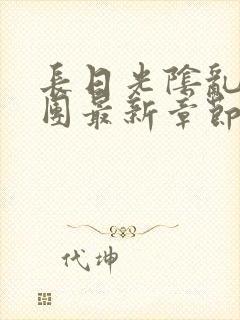 長日光陰亂
團最新章節
代坤